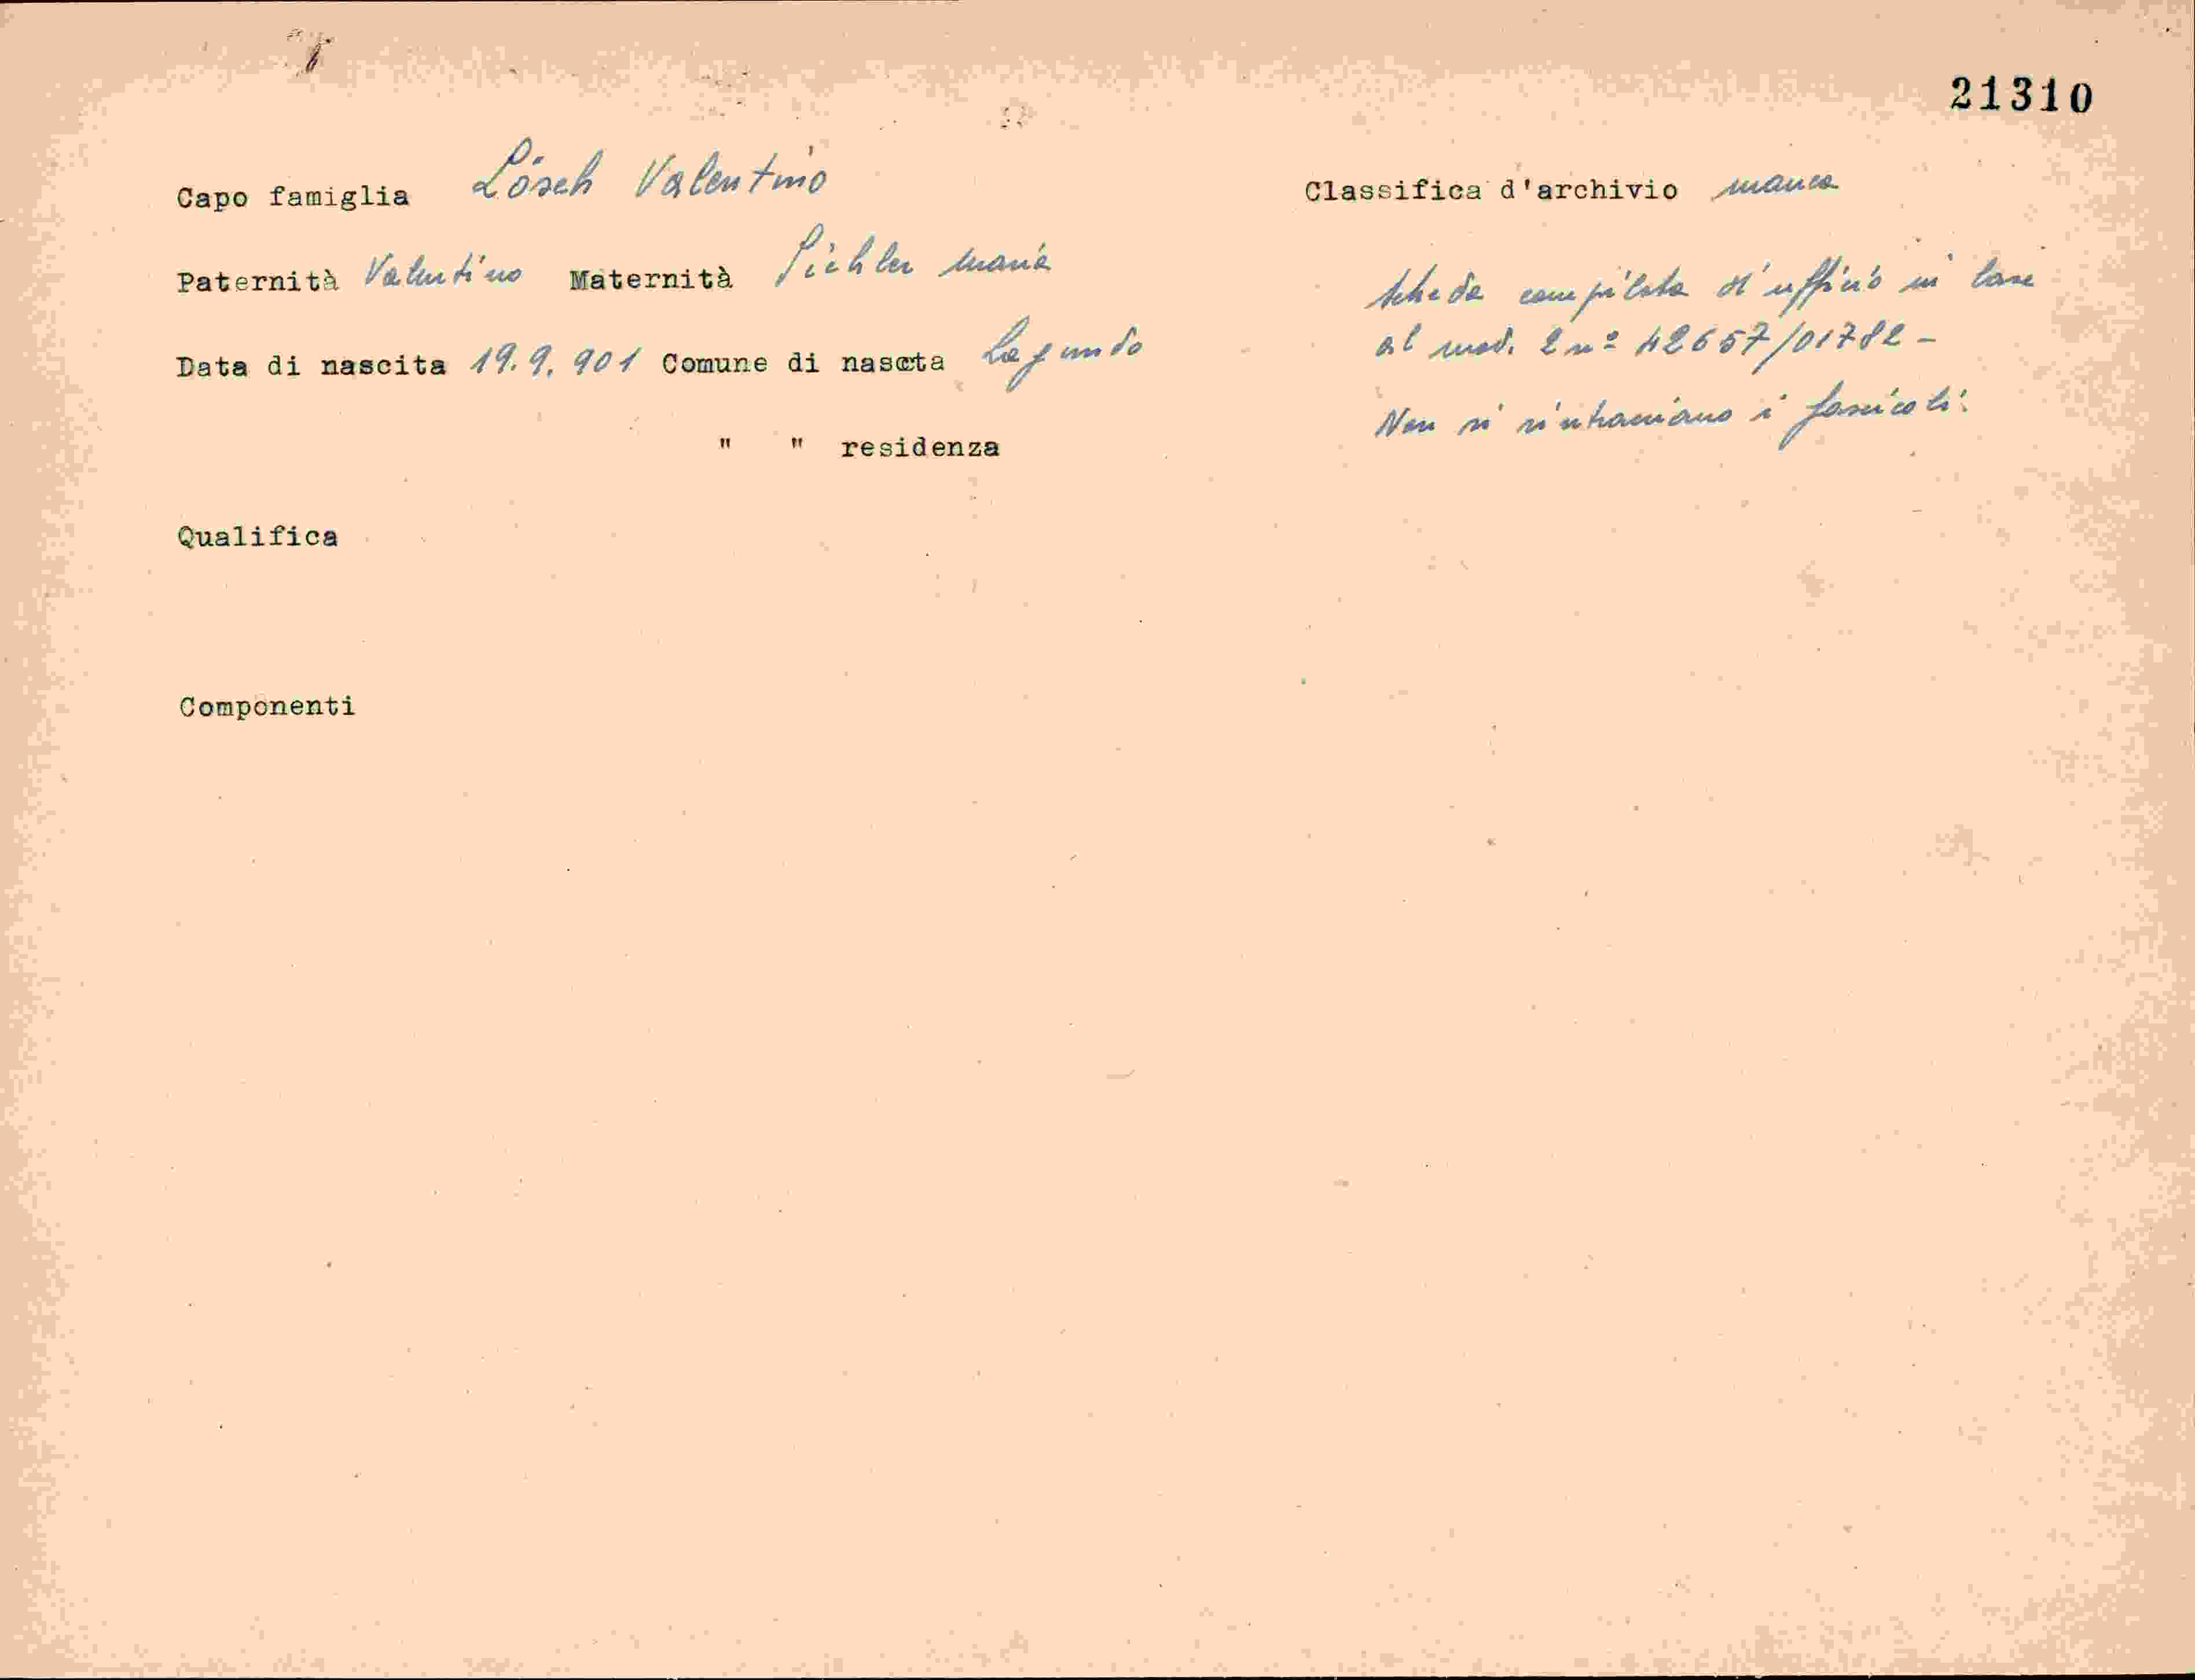 21310
Capo famiglia Lösch Valentino
Classifica d'archivio manca
Paternità Valentino Maternità Pichler Maria
Scheda compilata d'ufficio in base
Data di nascita 19.9.901 Comune di nascta Lagundo
al mod. 2 nº 42657/01782 -
Non si rintracciano i fascicoli.
" " residenza
Qualifica
Componenti